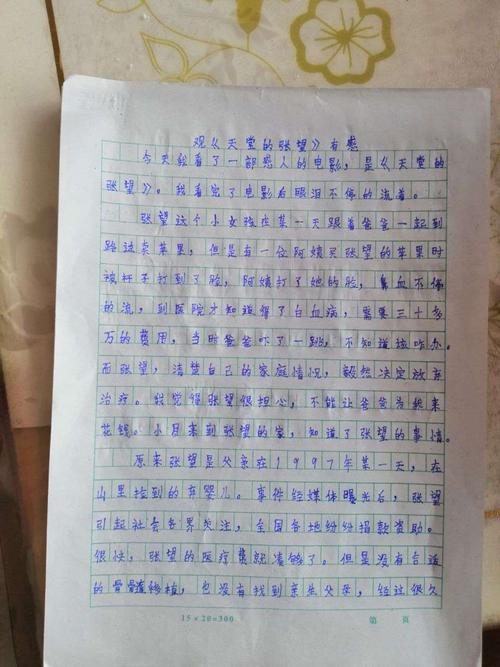 观《天堂的张望》有感
今天我看了一部感人的电影，是《天堂的
张望》。我看完了电影后眼泪不停的流着。
张望这个小女孩在某一天跟着爸爸一起到
路边卖苹里，但是有一位阿姨买张望的苹果时
被杆子打到了脸，阿姨打了她的脸，鼻血不停
的流，到医院才知道得了白血病，需要三十多
万的费用，当时爸爸吓了一跳，不知道该咋办。
而张望，清楚自己的家庭情况，毅然决定放弃
治疗。我觉得张望很担心，不能让爸爸为我来
花钱。小月来到张望的家，知道了张望的事情。
原来张望是父亲在1997年某一天，在
山里捡到的弃婴儿。事件经媒体曝光后，张望
引起社会各界关注，全国各地纷纷捐款资助。
很快，张望的医疗费就凑够了。但是没有合适
的骨髓移植，也没有找到亲生父母，经过很久
15×20=300 第 页